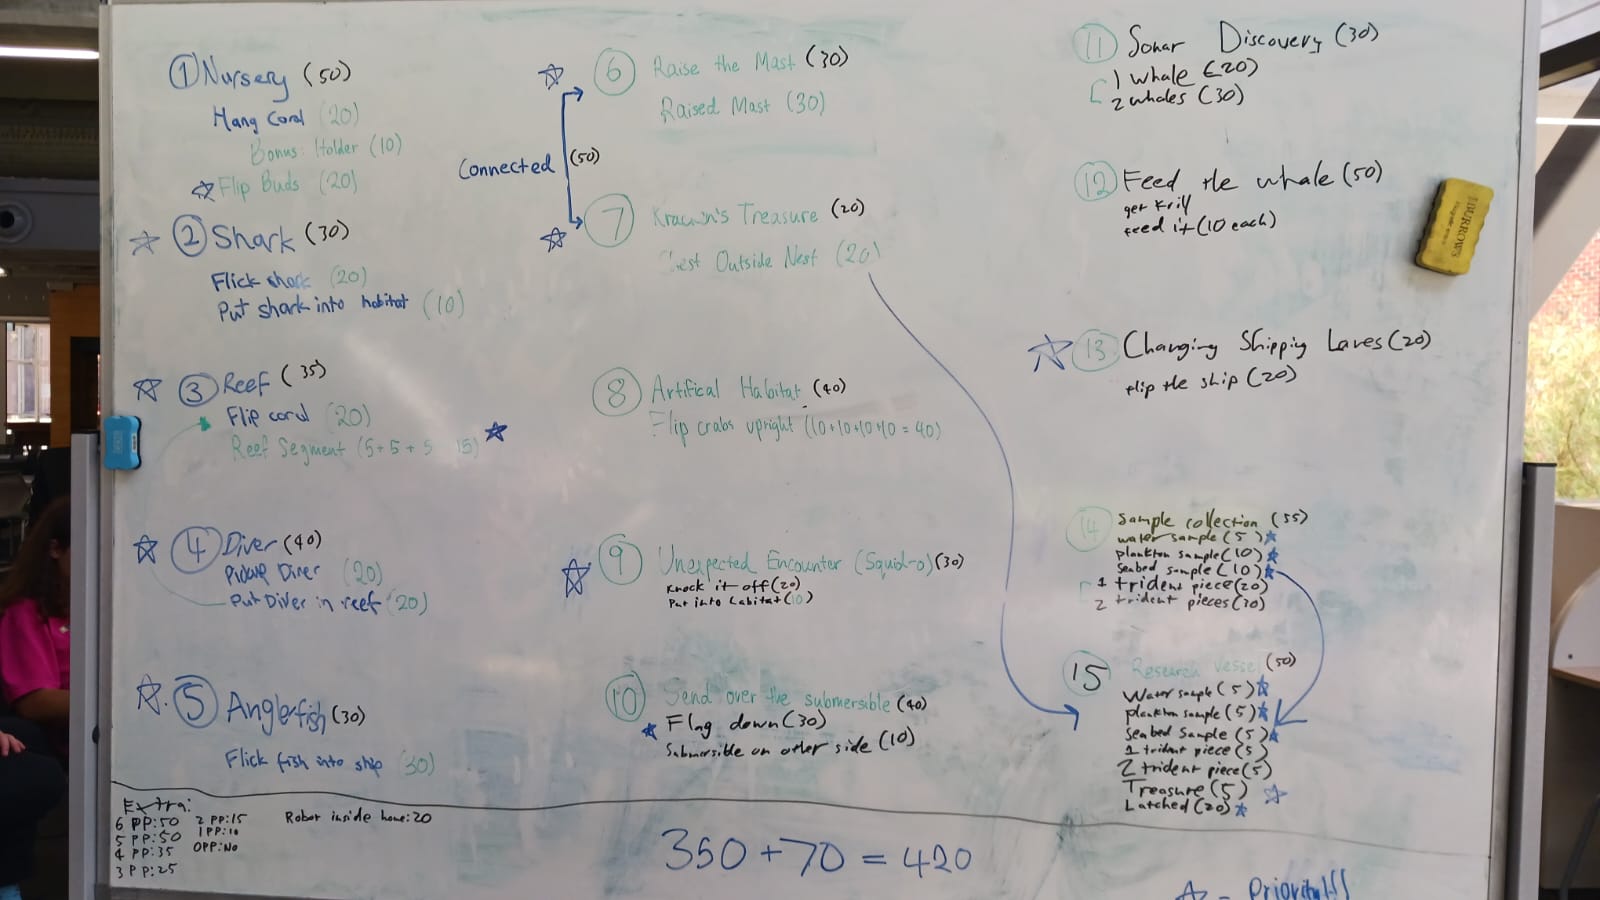 1 Nursery (50)
Hang Coral (20)
Bonus: Holder (10)
Flip Buds (20)
2 Shark (30)
Flick shark (20)
Put shark into habitat (10)
3 Reef (35)
Flip coral (20)
Reef Segment (5+5+5 15)
4 Diver (40)
Pickup Diver (20)
Put Diver in reef (20)
5 Anglerfish (30)
Flick fish into ship (30)
Connected (50)
6 Raise the Mast (30)
Raised Mast (30)
7 Treasure (20)
Outside Nest (20)
8 Artifical Habitat (40)
Flip crabs upright (10+10+10+10 = 40)
9 Unexpected Encounter (Squid-o) (30)
Knock it off (20)
Put into habitat (10)
10 Send over the submersible (40)
Flag down (30)
Submersible on other side (10)
11 Sonar Discovery (30)
1 whale (20)
2 whales (30)
12 Feed the whale (50)
get Krill
feed it (10 each)
13 Changing Shipping Lanes (20)
flip the ship (20)
14 Sample collection (55)
water sample (5)
plankton sample (10)
Seabed sample (10)
1 trident piece (20)
2 trident pieces (30)
15 Research Vessel (50)
Water sample (5)
plankton sample (5)
Seabed Sample (5)
1 trident piece (5)
2 trident piece (5)
Treasure (5)
Latched (20)
Extra:
6 PP:50 2 PP:15
5 PP:50 1 PP:10
4 PP:35 0PP:No
3 PP:25
Robot inside home: 20
350 + 70 = 420
= Priority!!!
BURROWS